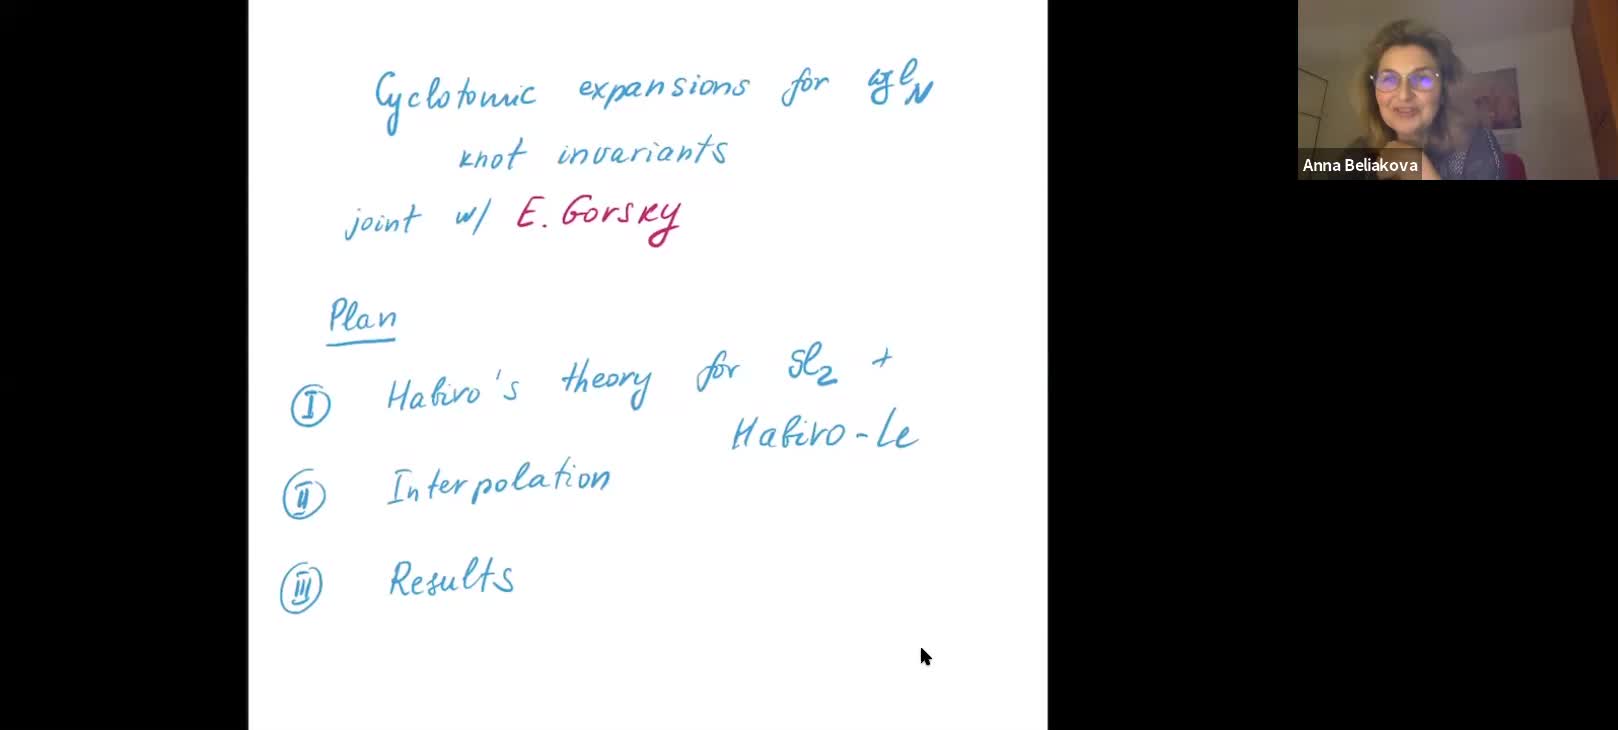 Cyclotomic expansions for gl_N
knot invariants
joint w/ E. Gorsky
Plan
I Habiro's theory for sl_2 +
Habiro-Le
II Interpolation
III Results
Anna Beliakova